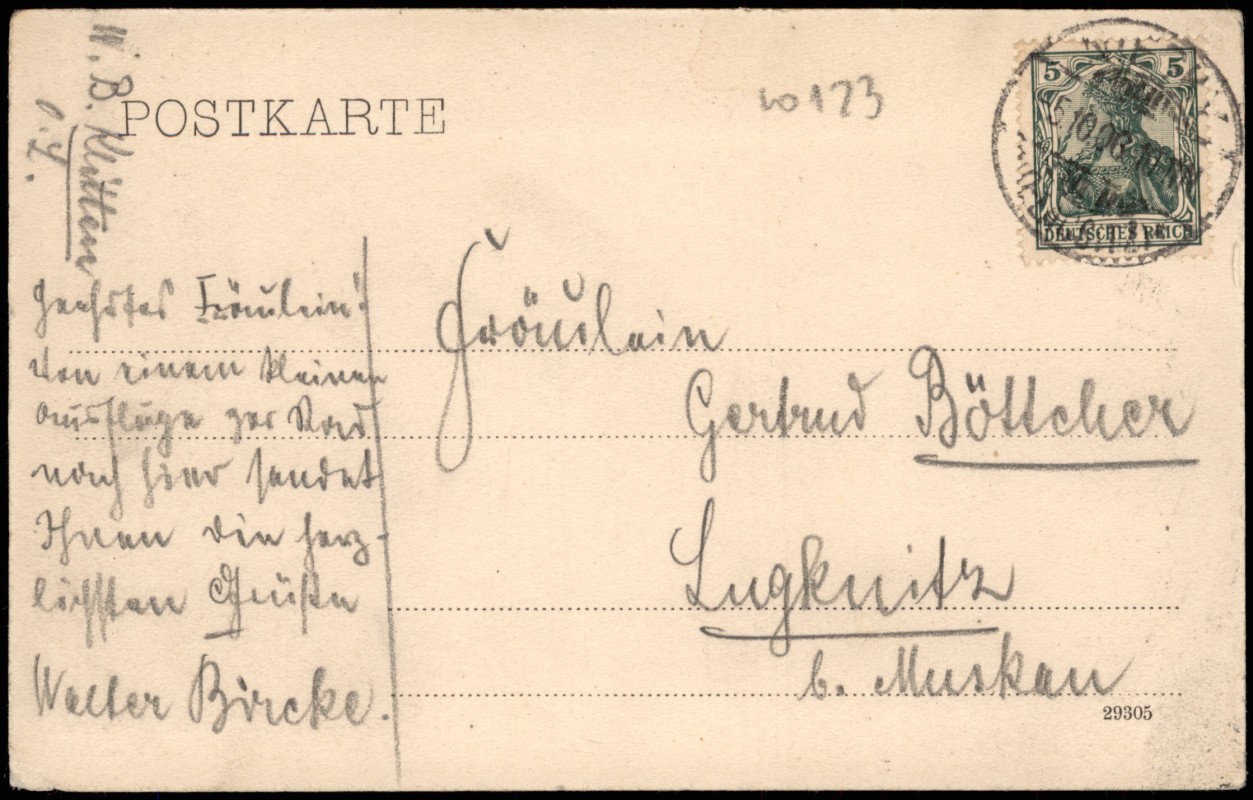 W. B. Klitten
POSTKARTE
10123
5 5
DEUTSCHES REICH
Geehrtes Fräulein!
Von einem kleinen
Ausfluge per Rad
nach hier sendet
Ihnen die herz-
lichsten Grüße
Walter Bircke.
Fräulein
Gertrud Böttcher
Lugknitz
b. Muskau
29305